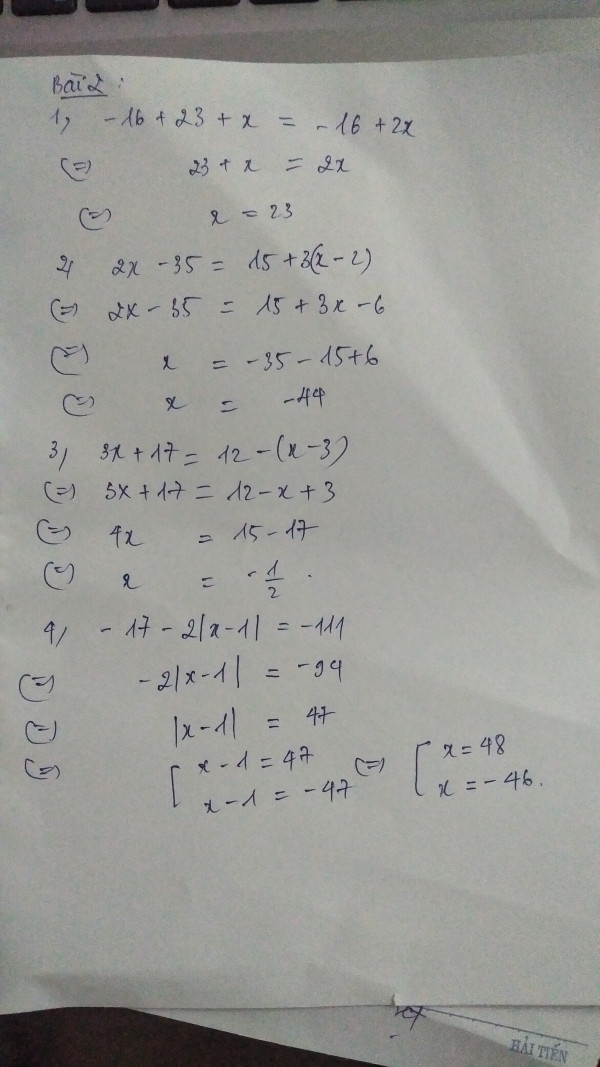 Bài 2:
1, -16 + 23 + x = -16 + 2x
(=) 23 + x = 2x
(=) x = 23
2, 2x - 35 = 15 + 3(x - 2)
(=) 2x - 35 = 15 + 3x - 6
(=) x = -35 - 15 + 6
(=) x = -44
3, 3x + 17 = 12 - (x - 3)
(=) 3x + 17 = 12 - x + 3
(=) 4x = 15 - 17
(=) x = -1/2.
4, -17 - 2|x - 1| = -111
(=) -2|x - 1| = -94
(=) |x - 1| = 47
(=) [ x - 1 = 47 (=) [ x = 48
x - 1 = -47 x = -46.
HẢI TIẾN